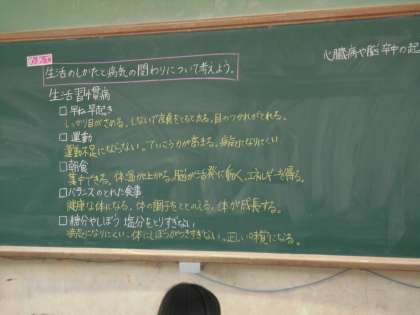 生活のしかたと病気の関わりについて考えよう。
心臓病や脳卒中の起
生活習慣病
□早ね早起き
しっかり目がさめる。
□運動
運動不足にならない。ていこう力が高まる。病気になりにくい
□朝食
集中できる。体温が上がる。脳が活発に動く。エネルギーを得る。
□バランスのとれた食事
健康な体になる。体の調子をととのえる。体が成長する。
□糖分やしぼう 塩分をとりすぎない
病気になりにくい。体にしぼうがつきすぎない。正しい味覚になる。